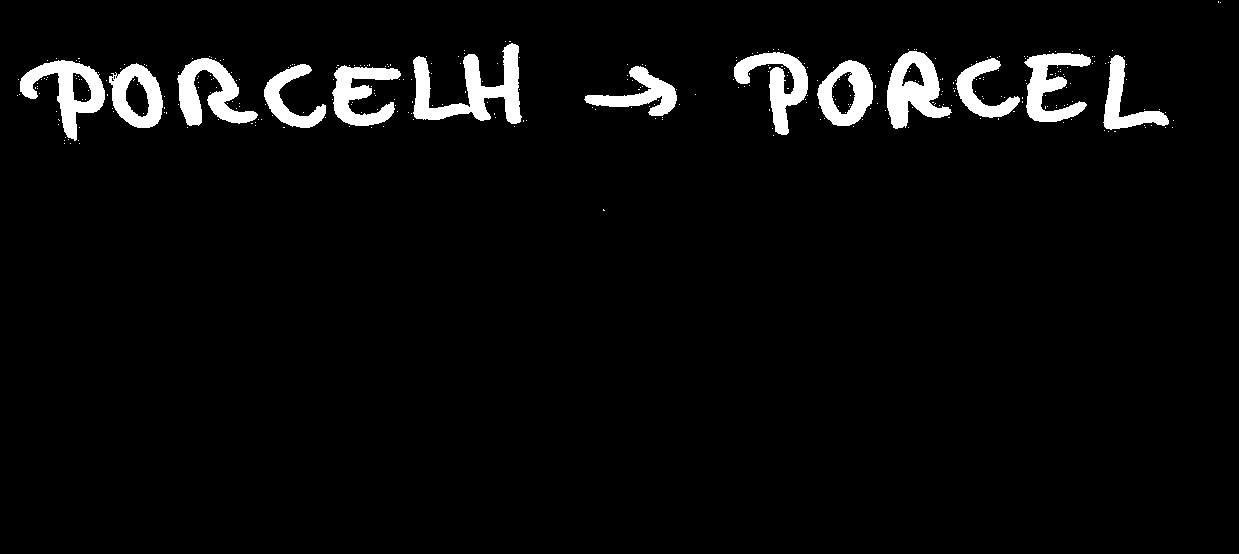 PORCELH → PORCEL